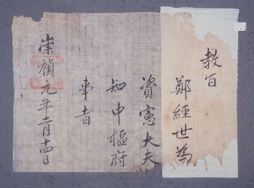 教旨
鄭經世爲
資憲大夫
知中樞府
事者
崇禎元年二月十四日